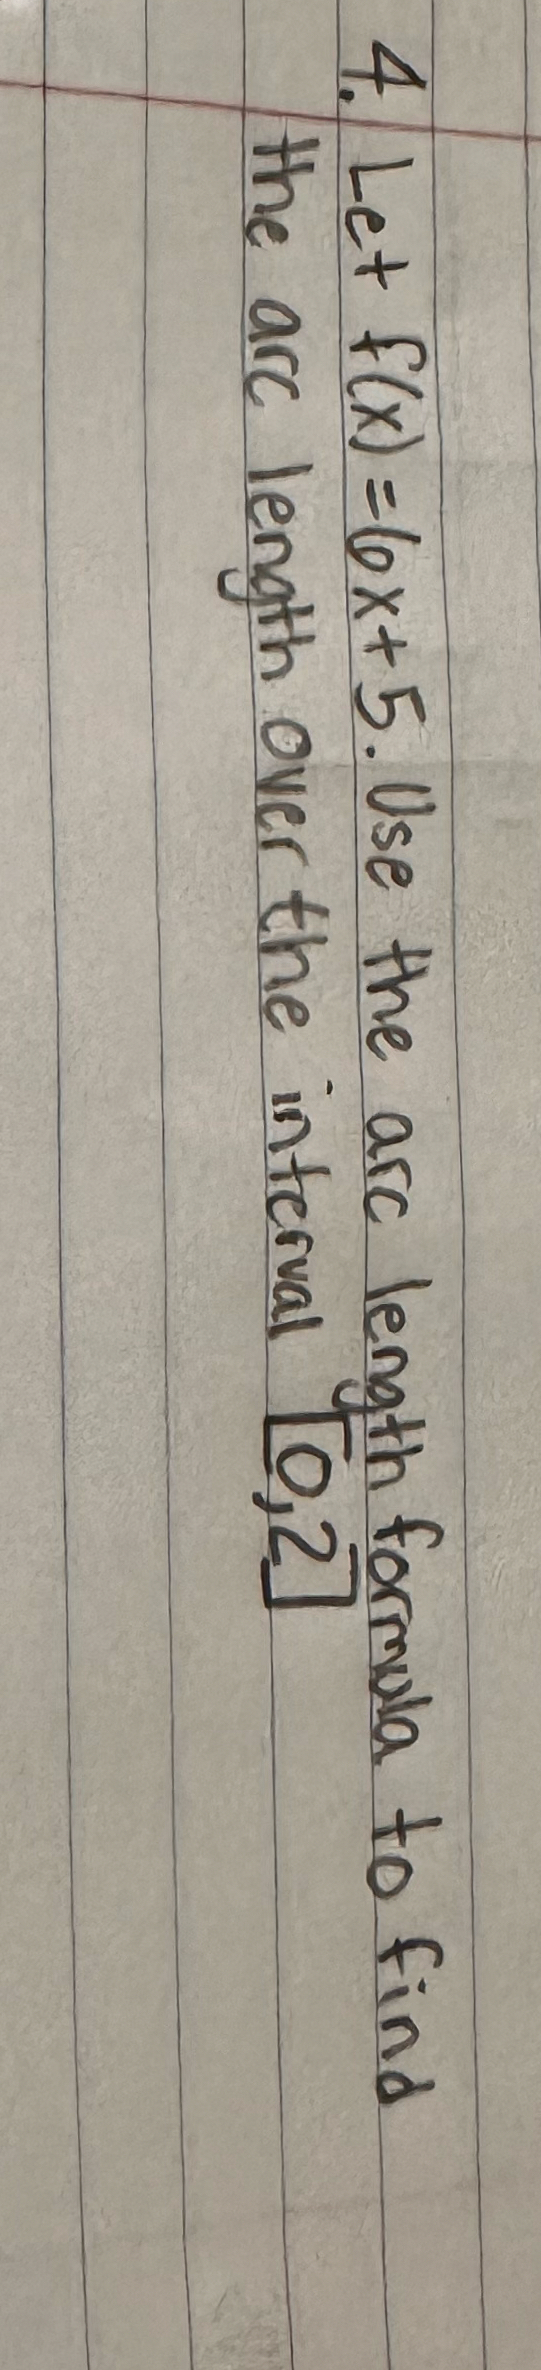 4. Let f(x) = 6x + 5. Use the arc length formula to find
the arc length over the interval [0,2]